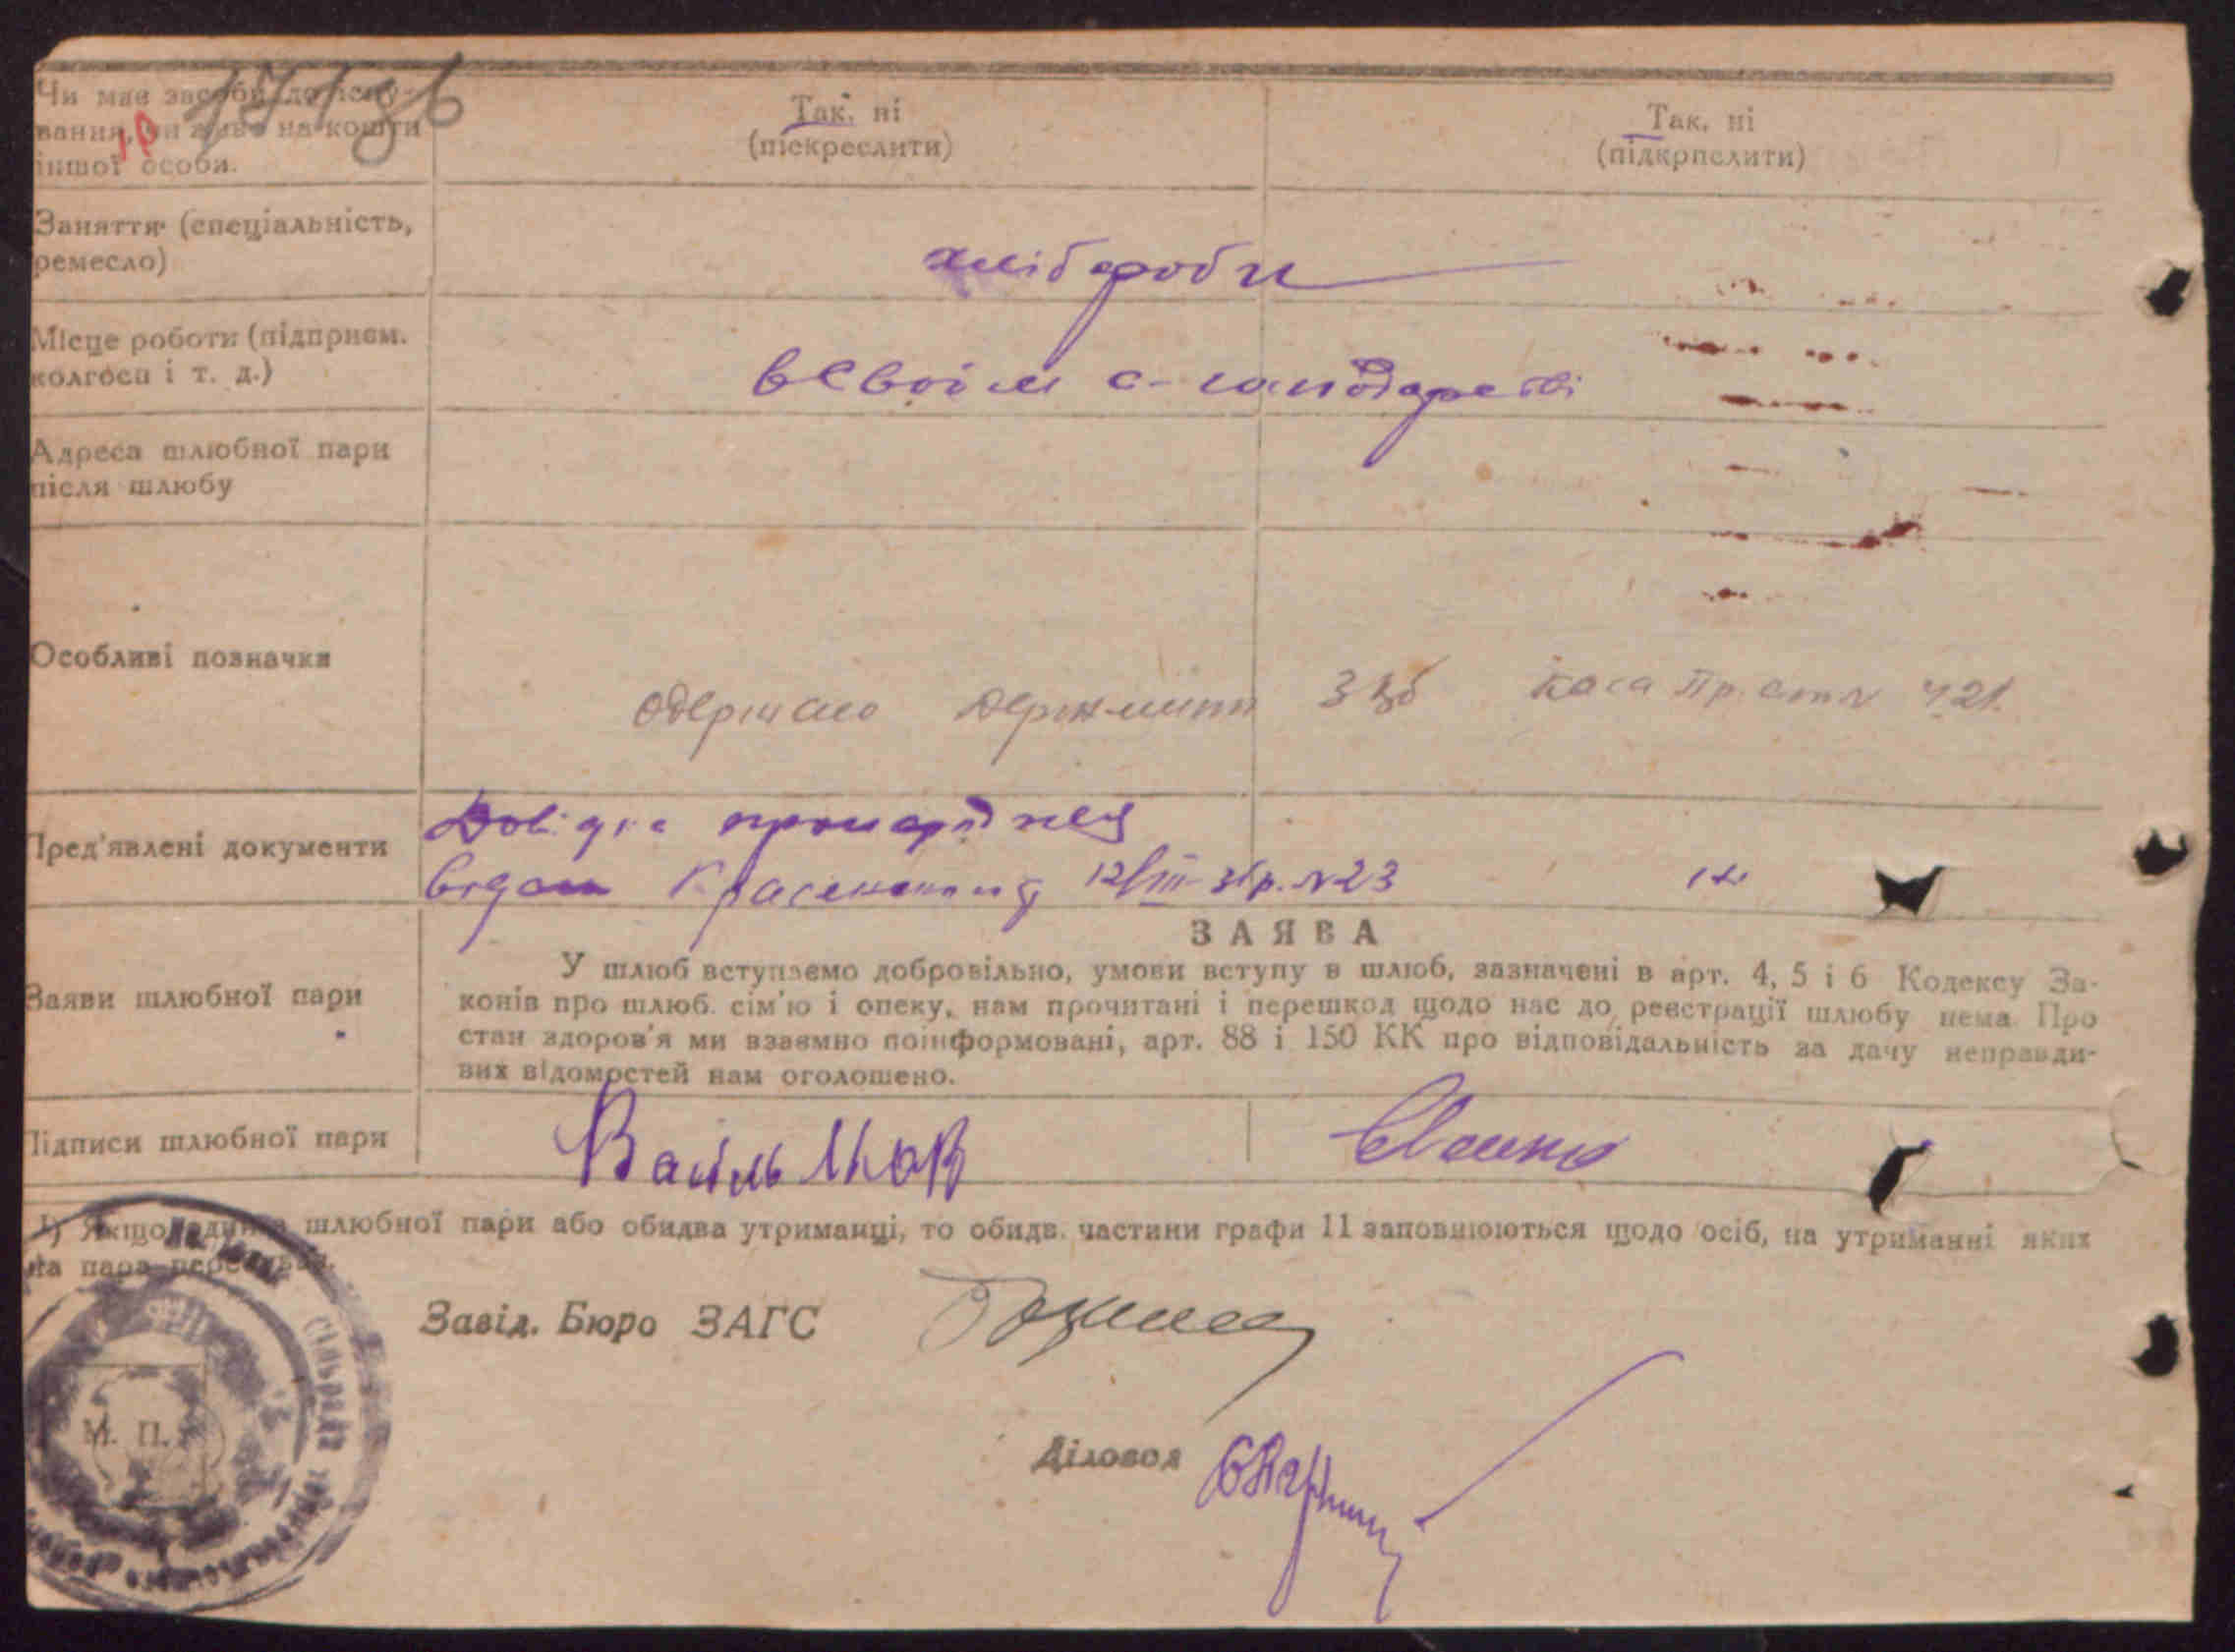 Чи має засоби до існу-
вання, чи живе на кошти
іншої особи.
Так, ні
(піскреслити)
Так, ні
(підкрпслити)
Заняття (спеціальність,
ремесло)
хлібороби
Місце роботи (підприєм.
колгосп і т. д.)
в своїм с-господарстві
Адреса шлюбної пари
після шлюбу
Особливі позначки
Одержано держмита
Пред'явлені документи
Довідка
12/III-31р. №23
ЗАЯВА
Заяви шлюбної пари
У шлюб вступаємо добровільно, умови вступу в шлюб, зазначені в арт. 4, 5 і 6 Кодексу За-
конів про шлюб. сім'ю і опеку, нам прочитані і перешкод щодо нас до реєстрації шлюбу нема. Про
стан здоров'я ми взаємно поінформовані, арт. 88 і 150 КК про відповідальність за дачу неправди-
вих відомостей нам оголошено.
Підписи шлюбної пари
Василь
1) Якщо шлюбної пари або обидва утриманці, то обидв. частини графи 11 заповнюються щодо осіб, на утриманні яких
ця пара перебуває.
Завід. Бюро ЗАГС
М. П.
Сільрада
Діловод